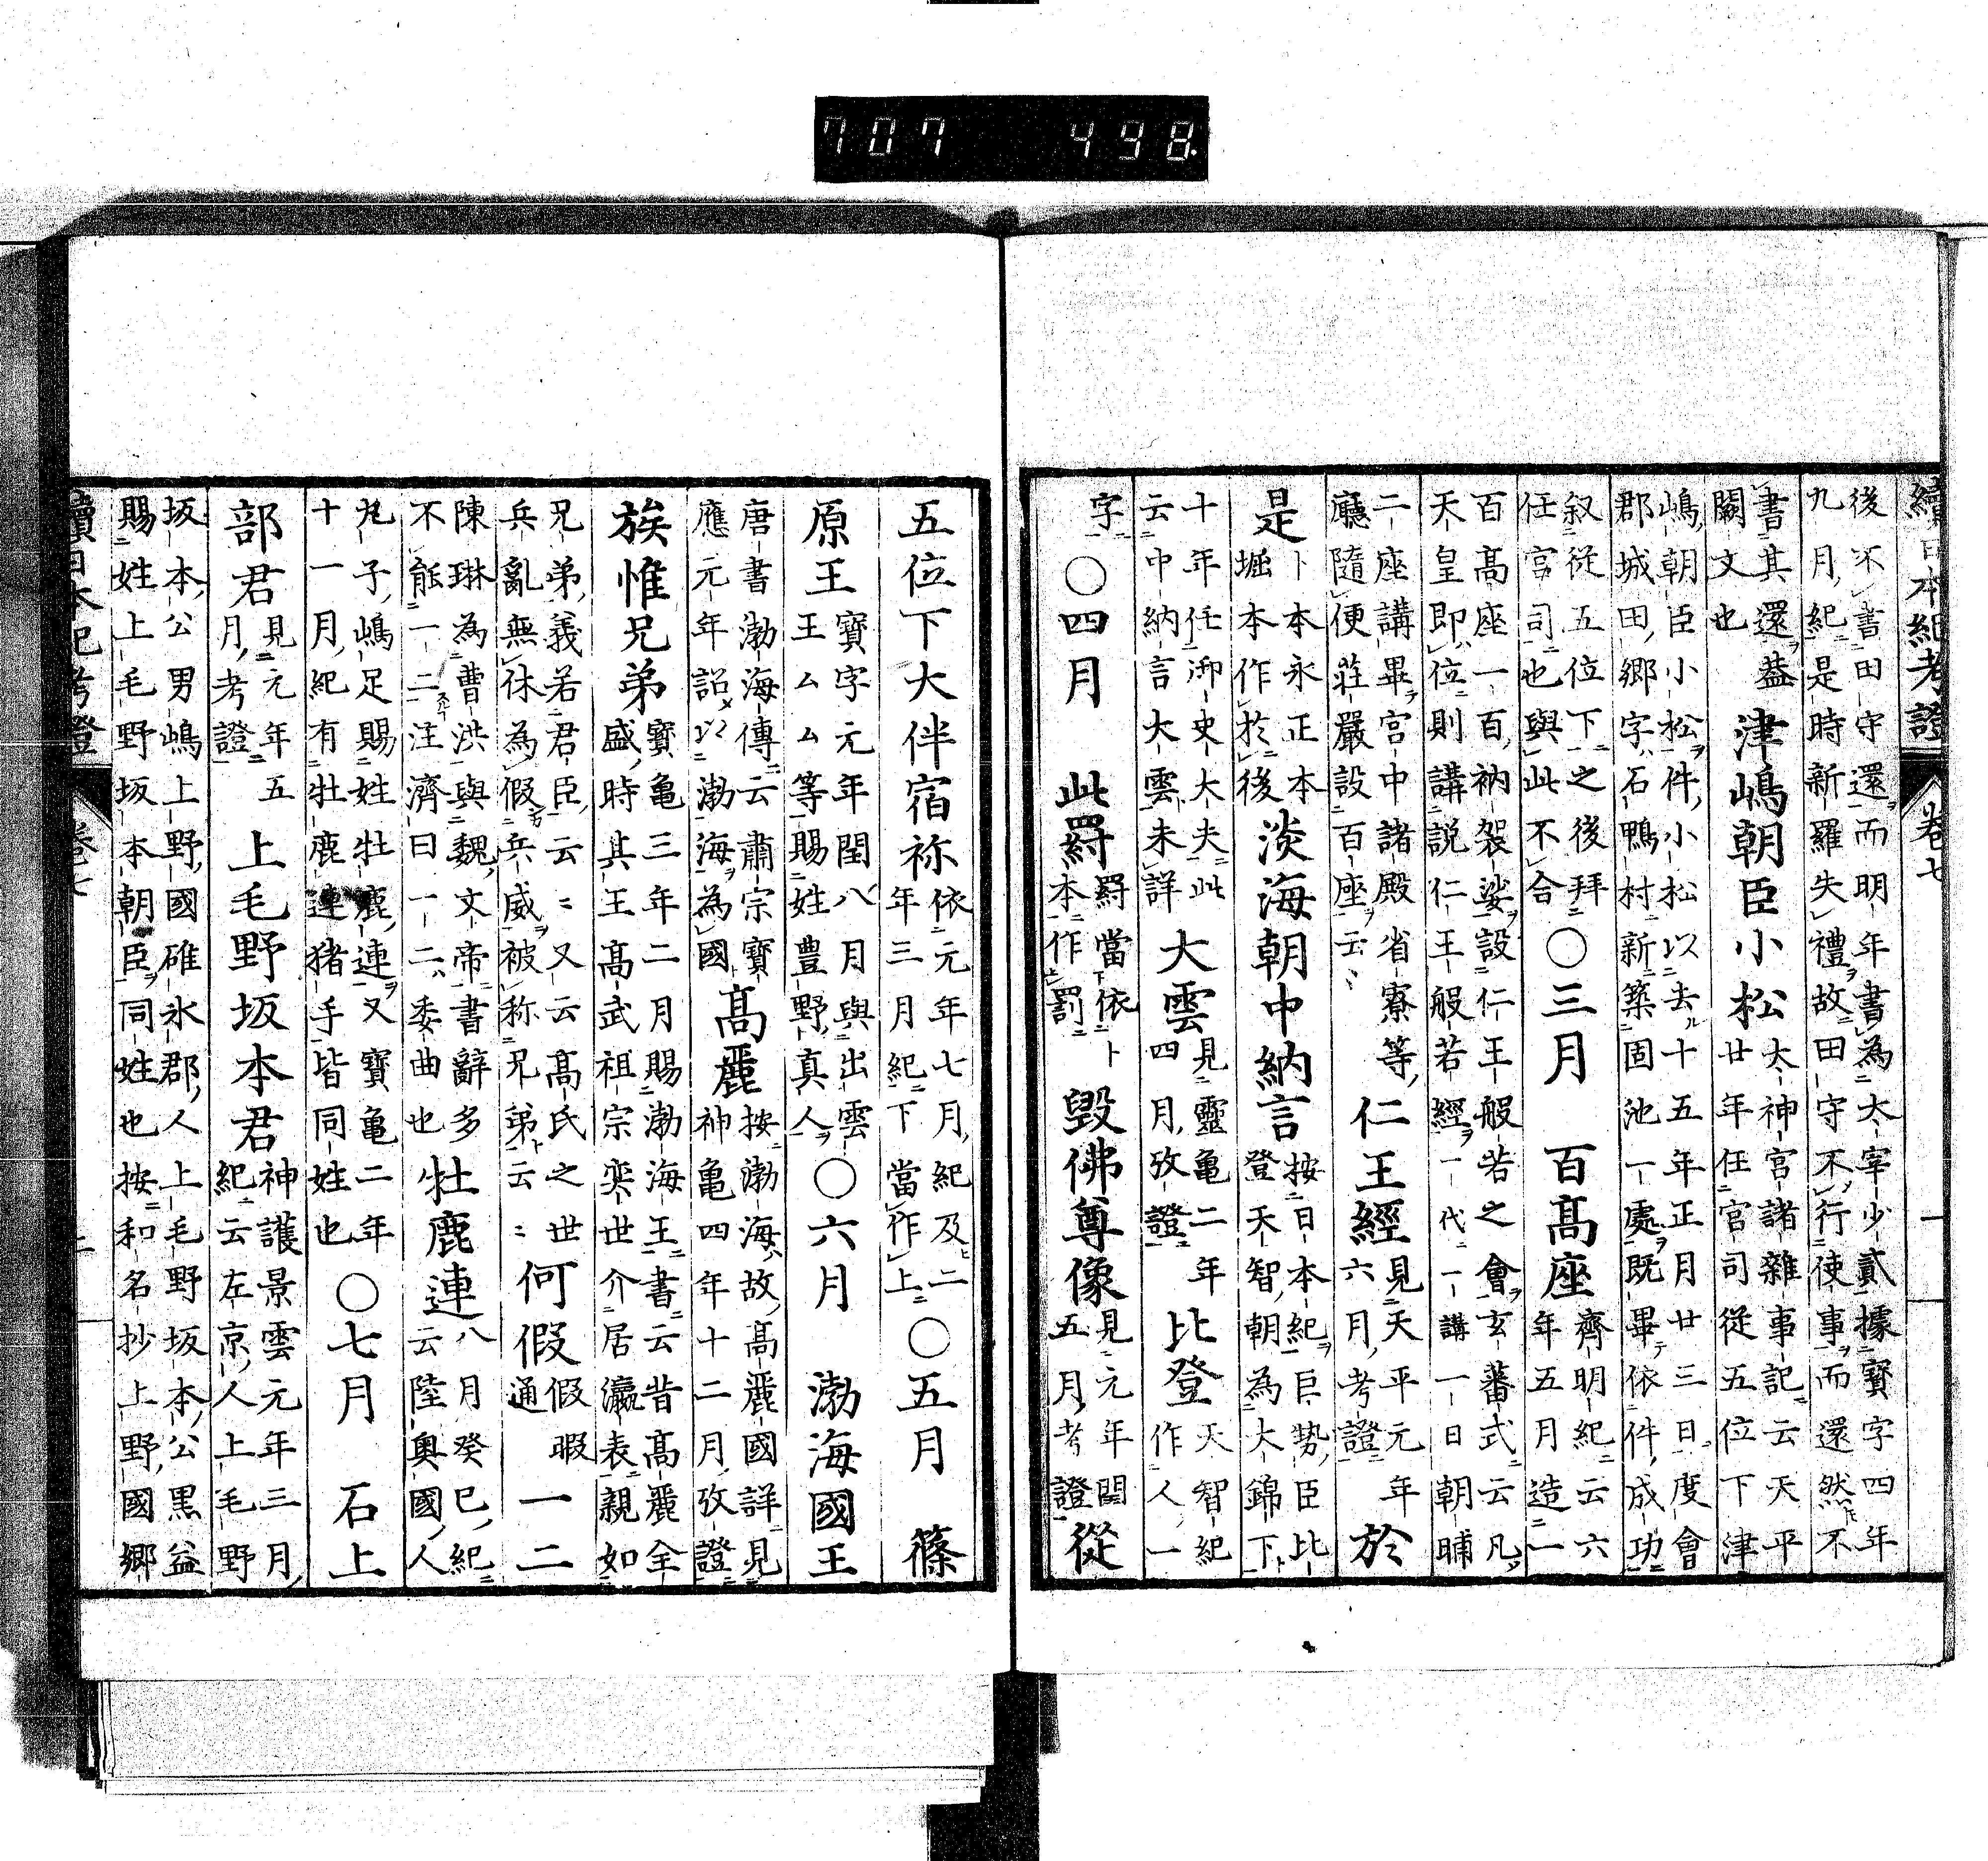 707 498.
續日本紀考證 卷七 一
後不書田守還而明年書為大宰少貳據寶字四年
九月紀是時新羅失禮故田守不行使事而還然不
書其還葢
闕文也
津嶋朝臣小松
大神宮諸雜事記云天平
廿年任官司從五位下津
嶋朝臣小松件小松以去十五年正月廿三日度會
郡城田鄉字石鴨村新築固池一處既畢依件成功
叙從五位下之後拜
任宮司也與此不合
○三月 百髙座
齊明紀云六
年五月造一
百髙座一百衲袈裟設仁王般若之會玄蕃式云凡
天皇即位則講說仁王般若經一代一講一日朝晡
二座講畢宮中諸殿省寮等
廳隨便莊嚴設百座云云
仁王經
見天平元年
六月考證
於
是
卜本永正本
堀本作於後
淡海朝中納言
按日本紀巨勢臣比
登天智朝為大錦下
十年任御史大夫此
云中納言大雲未詳
大雲
見靈亀二年
四月攷證
比登
天智紀
作人一
字
○四月 此罸
罸當依卜
本作罰
毀佛尊像
見元年閏
五月考證
從
五位下大伴宿祢
依元年七月紀及二
年三月紀下當作上
○五月 篠
原王
寶字元年閏八月與出雲
王ムム等賜姓豊野真人
○六月 渤海國王
唐書渤海傳云肅宗寶
應元年詔以渤海為國
髙麗
按渤海故髙麗國詳見
神亀四年十二月攷證
族惟兄弟
寶亀三年二月賜渤海王書云昔髙麗全
盛時其王髙武祖宗奕世介居瀛表親如
兄弟義若君臣云云又云髙氏之世
兵亂無休為假兵威被称兄弟云云
何假
假暇
通
一二
陳琳為曹洪與魏文帝書辭多
不能一二注濟曰一二委曲也
牡鹿連
八月癸巳紀
云陸奥國人
丸子嶋足賜姓牡鹿連又寶亀二年
十一月紀有牡鹿連猪手皆同姓也
○七月 石上
部君
見元年五
月考證
上毛野坂本君
神護景雲元年三月
紀云左京人上毛野
坂本公男嶋上野國碓氷郡人上毛野坂本公黒益
賜姓上毛野坂本朝臣同姓姓也按和名抄上野國鄉
續日本紀考證 卷七 二